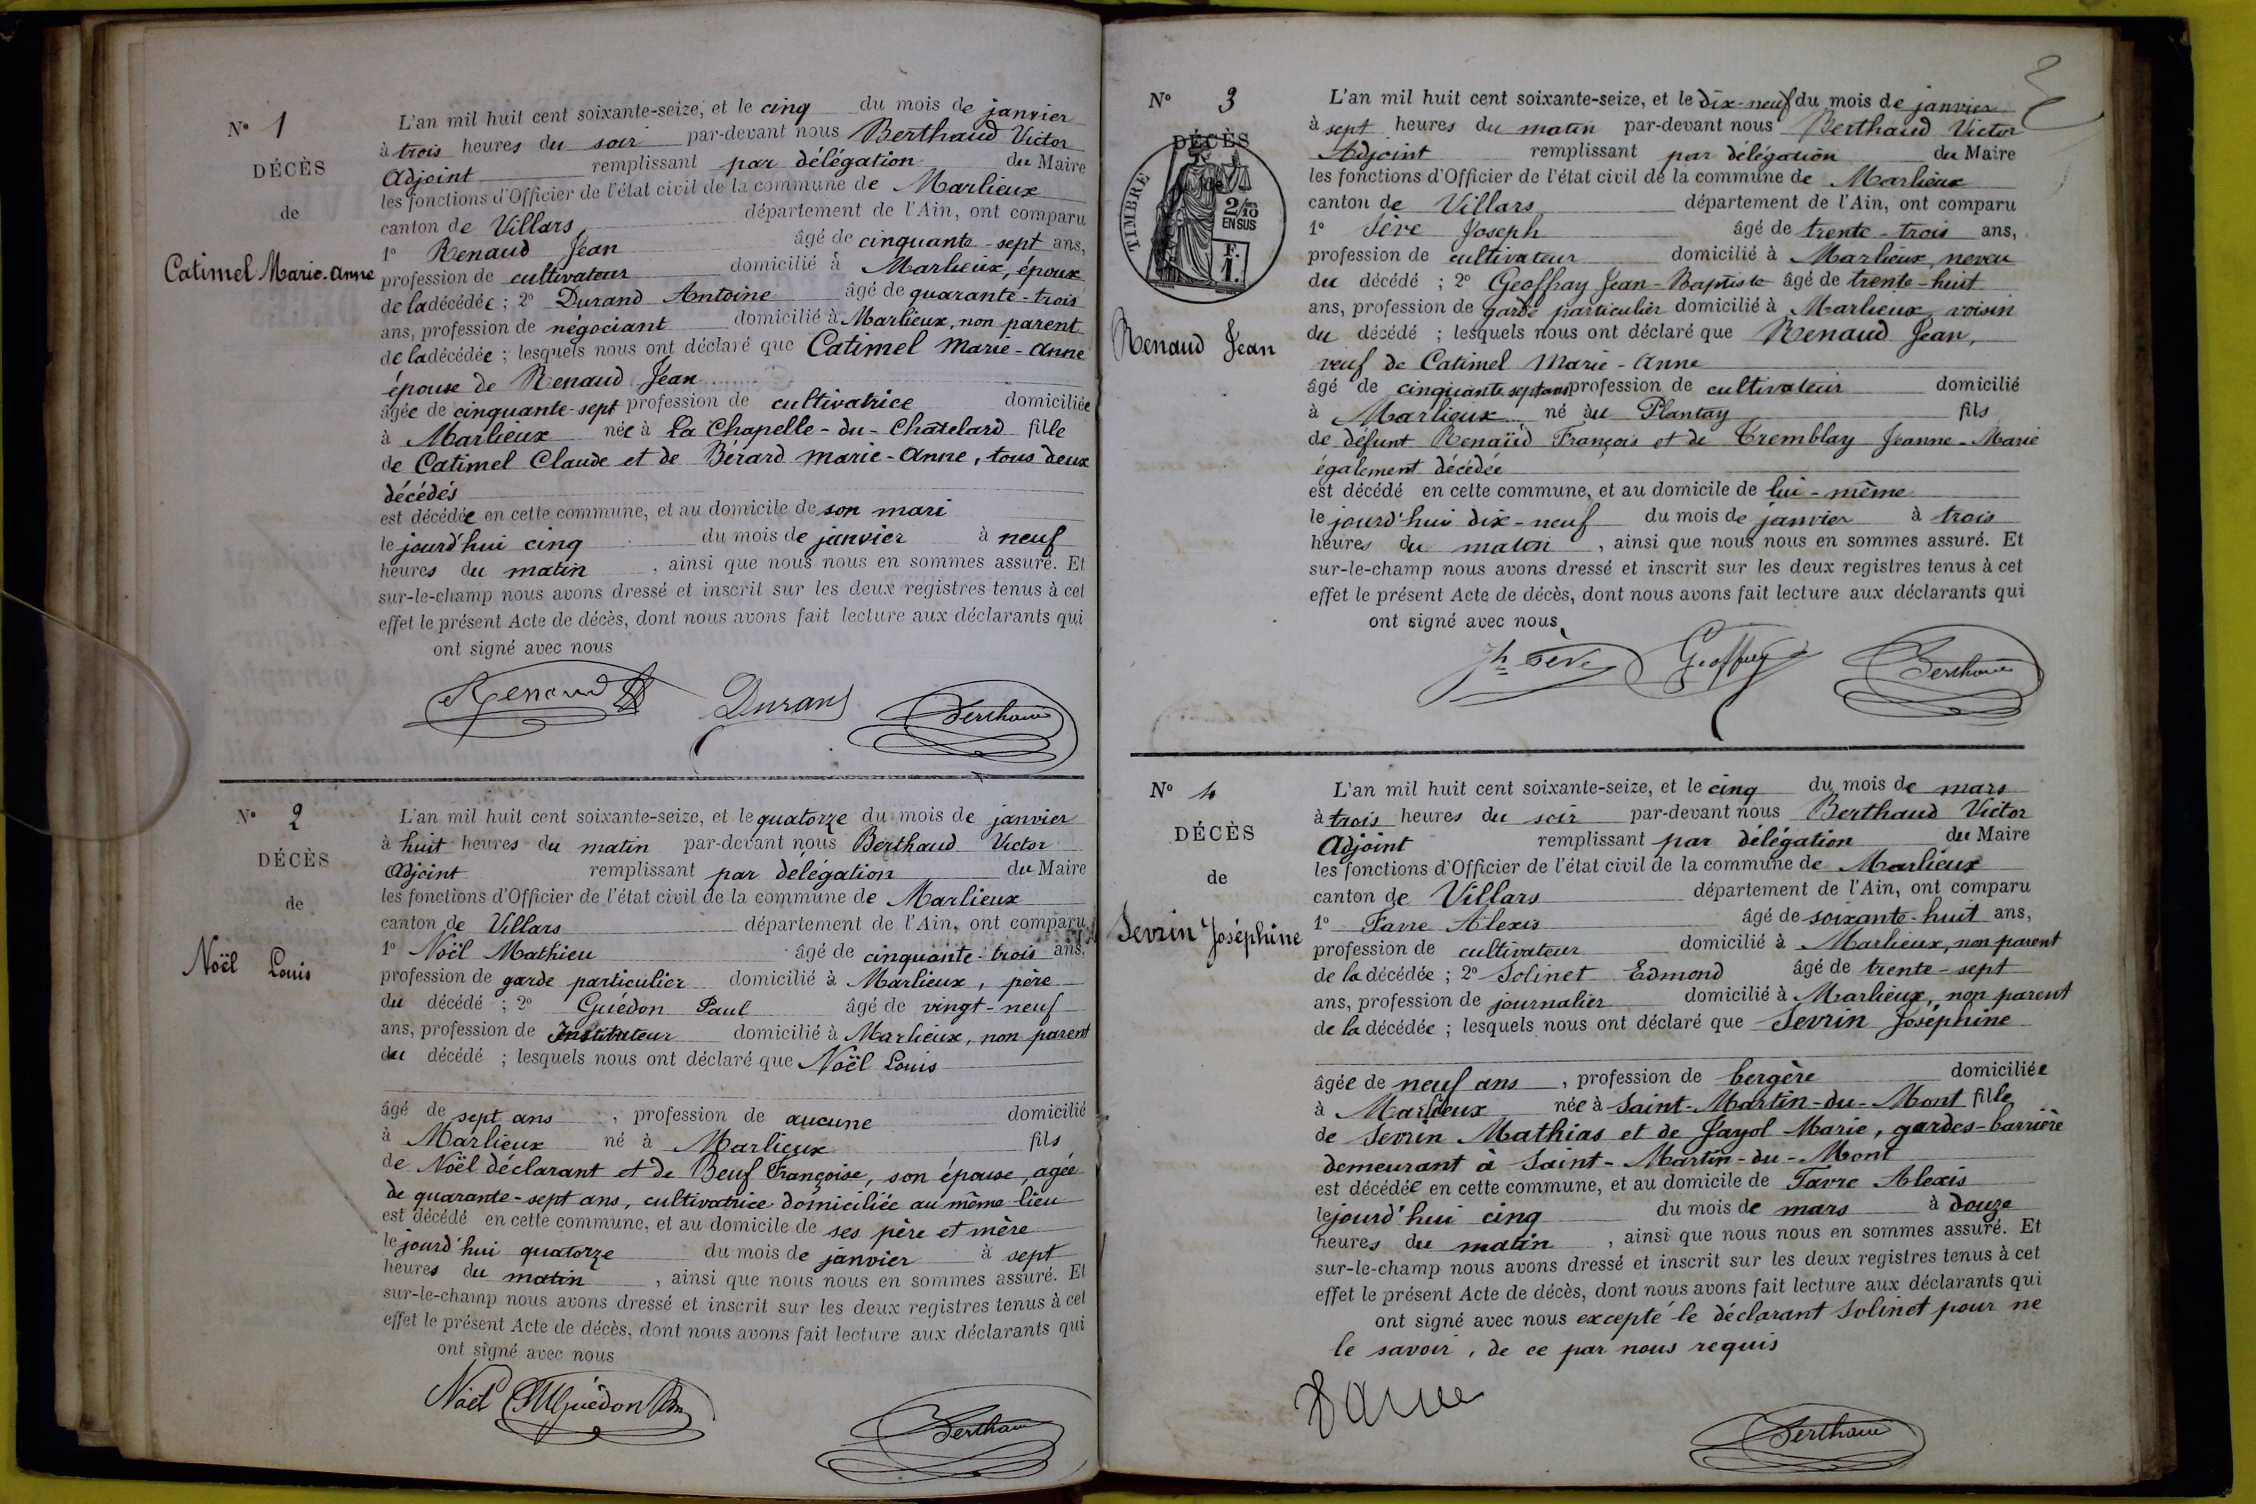 N° 1
DÉCÈS
de
Catimel Marie-Anne
L'an mil huit cent soixante-seize, et le cinq du mois de janvier
à trois heures du soir par-devant nous Berthaud Victor
Adjoint remplissant par délégation du Maire
les fonctions d'Officier de l'état civil de la commune de Marlieux
canton de Villars, département de l'Ain, ont comparu
1° Renaud Jean âgé de cinquante-sept ans,
profession de cultivateur domicilié à Marlieux, époux
de la décédée ; 2° Durand Antoine âgé de quarante-trois
ans, profession de négociant domicilié à Marlieux, non parent
de la décédée ; lesquels nous ont déclaré que Catimel Marie-Anne
épouse de Renaud Jean
âgée de cinquante-sept profession de cultivatrice domiciliée
à Marlieux née à La Chapelle-du-Châtelard fille
de Catimel Claude et de Bérard Marie-Anne, tous deux
décédés
est décédée en cette commune, et au domicile de son mari
le jourd'hui cinq du mois de janvier à neuf
heures du matin, ainsi que nous nous en sommes assuré. Et
sur-le-champ nous avons dressé et inscrit sur les deux registres tenus à cet
effet le présent Acte de décès, dont nous avons fait lecture aux déclarants qui
ont signé avec nous
Renaud Durand Berthaud
N° 2
DÉCÈS
de
Noël Louis
L'an mil huit cent soixante-seize, et le quatorze du mois de janvier
à huit heures du matin par-devant nous Berthaud Victor
Adjoint remplissant par délégation du Maire
les fonctions d'Officier de l'état civil de la commune de Marlieux
canton de Villars département de l'Ain, ont comparu
1° Noël Mathieu âgé de cinquante-trois ans,
profession de garde particulier domicilié à Marlieux, père
du décédé ; 2° Guédon Paul âgé de vingt-neuf
ans, profession de Instituteur domicilié à Marlieux, non parent
du décédé ; lesquels nous ont déclaré que Noël Louis
âgé de sept ans, profession de aucune domicilié
à Marlieux né à Marlieux fils
de Noël déclarant et de Beuf Françoise, son épouse, agée
de quarante-sept ans, cultivatrice domiciliée au même lieu
est décédé en cette commune, et au domicile de ses père et mère
le jourd'hui quatorze du mois de janvier à sept
heures du matin, ainsi que nous nous en sommes assuré. Et
sur-le-champ nous avons dressé et inscrit sur les deux registres tenus à cet
effet le présent Acte de décès, dont nous avons fait lecture aux déclarants qui
ont signé avec nous
Noël Guédon Berthaud
N° 3
DÉCÈS
TIMBRE
2/10
EN SUS
F.
1.
Renaud Jean
L'an mil huit cent soixante-seize, et le dix-neuf du mois de janvier
à sept heures du matin par-devant nous Berthaud Victor
Adjoint remplissant par délégation du Maire
les fonctions d'Officier de l'état civil de la commune de Marlieux
canton de Villars département de l'Ain, ont comparu
1° Sève Joseph âgé de trente-trois ans,
profession de cultivateur domicilié à Marlieux, neveu
du décédé ; 2° Geoffray Jean-Baptiste âgé de trente-huit
ans, profession de garde particulier domicilié à Marlieux, voisin
du décédé ; lesquels nous ont déclaré que Renaud Jean,
veuf de Catimel Marie-Anne
âgé de cinquante sept ans profession de cultivateur domicilié
à Marlieux, né au Plantay fils
de défunt Renaud François et de Tremblay Jeanne-Marie
également décédée
est décédé en cette commune, et au domicile de lui-même
le jourd'hui dix-neuf du mois de janvier à trois
heures du matin, ainsi que nous nous en sommes assuré. Et
sur-le-champ nous avons dressé et inscrit sur les deux registres tenus à cet
effet le présent Acte de décès, dont nous avons fait lecture aux déclarants qui
ont signé avec nous
Jh Sève Geoffray Berthaud
N° 4
DÉCÈS
de
Sevrin Joséphine
L'an mil huit cent soixante-seize, et le cinq du mois de mars
à trois heures du soir par-devant nous Berthaud Victor
Adjoint remplissant par délégation du Maire
les fonctions d'Officier de l'état civil de la commune de Marlieux
canton de Villars département de l'Ain, ont comparu
1° Favre Alexis âgé de soixante-huit ans,
profession de cultivateur domicilié à Marlieux, non parent
de la décédée ; 2° Solinet Edmond âgé de trente-sept
ans, profession de journalier domicilié à Marlieux, non parent
de la décédée ; lesquels nous ont déclaré que Sevrin Joséphine
âgée de neuf ans, profession de bergère domiciliée
à Marlieux née à Saint-Martin-du-Mont fille
de Sevrin Mathias et de Jayol Marie, gardes-barrière
demeurant à Saint-Martin-du-Mont
est décédée en cette commune, et au domicile de Favre Alexis
le jourd'hui cinq du mois de mars à douze
heures du matin, ainsi que nous nous en sommes assuré. Et
sur-le-champ nous avons dressé et inscrit sur les deux registres tenus à cet
effet le présent Acte de décès, dont nous avons fait lecture aux déclarants qui
ont signé avec nous excepté le déclarant Solinet pour ne
le savoir, de ce par nous requis
Favre Berthaud